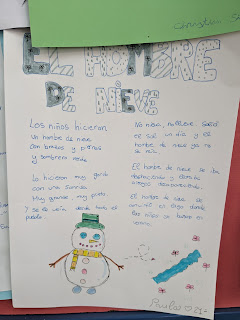 EL HOMBRE
DE NIEVE
Los niños hicieron
Un hombre de nieve
Con brazos y piernas
y sombrero verde
Lo hicieron muy gordo
con una sonrisa
Muy grande muy
y se le veía desde
pueblo.
No nieva, no llueve. Salió
el sol un día y el
hombre de nieve ya no
se reía.
El hombre de nieve se iba
derritiendo y
alegre desapareciendo.
El hombre de nieve se
convirtió en lago donde
los niños se bañan en
verano.
Paula